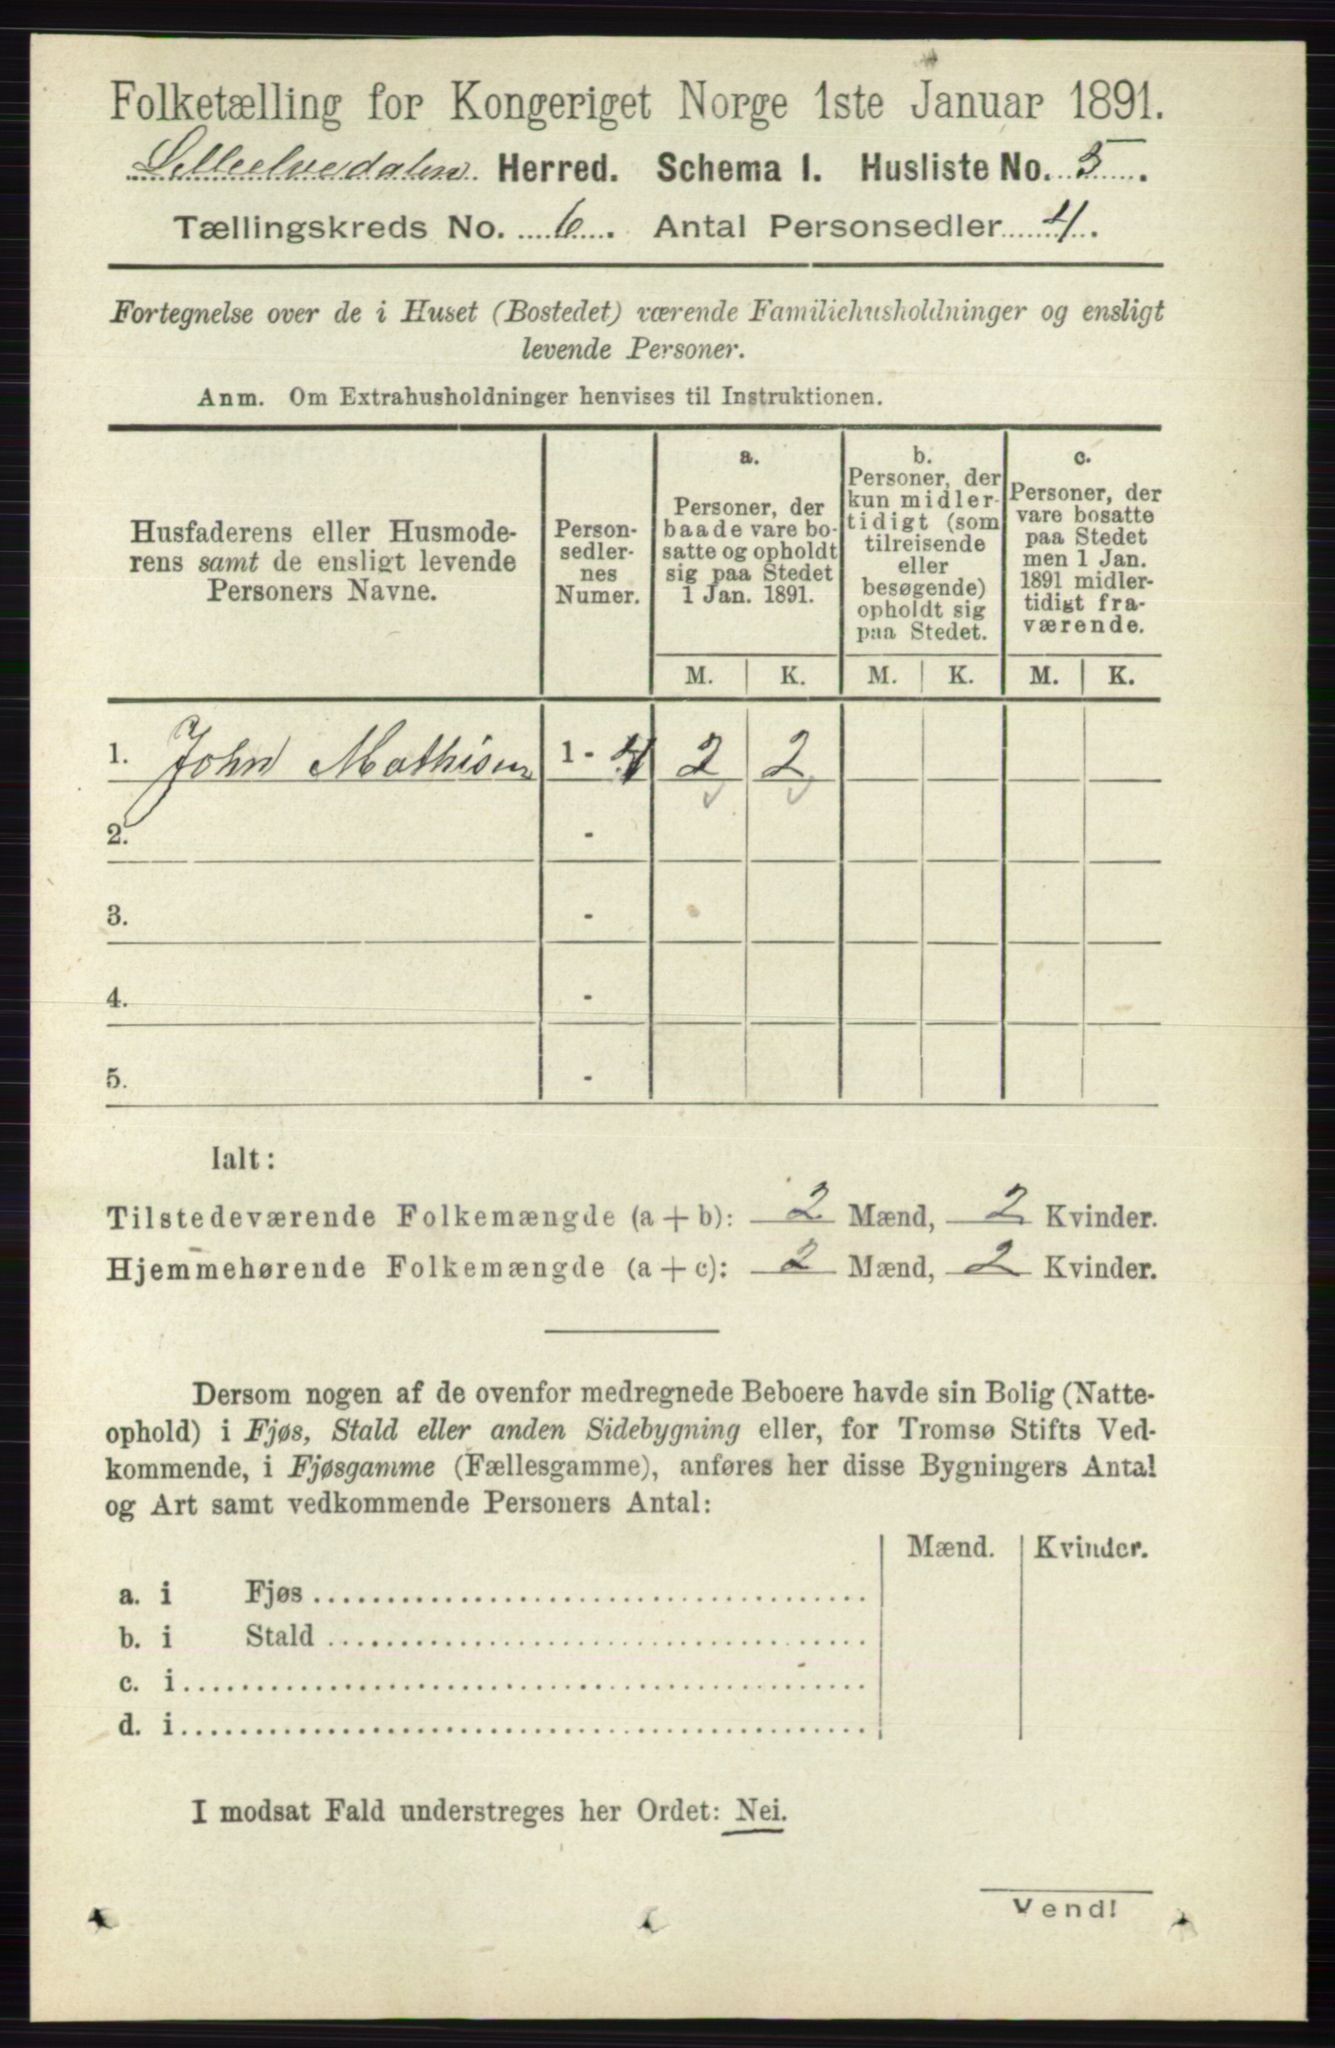 Folketælling for Kongeriget Norge 1ste Januar 1891.
Lilleelvedalen Herred. Schema I. Husliste No. 5.
Tællingskreds No. 6. Antal Personsedler 4.
Fortegnelse over de i Huset (Bostedet) værende Familiehusholdninger og ensligt
levende Personer.
Anm. Om Extrahusholdninger henvises til Instruktionen.
Husfaderens eller Husmode-
rens samt de ensligt levende
Personers Navne.
Person-
sedler-
nes
Numer.
a.
Personer, der
baade vare bo-
satte og opholdt
sig paa Stedet
1 Jan. 1891.
b.
Personer, der
kun midler-
tidigt (som
tilreisende
eller
besøgende)
opholdt sig
paa Stedet.
c.
Personer, der
vare bosatte
paa Stedet
men 1 Jan.
1891 midler-
tidigt fra-
værende.
M. K. M. K. M. K.
1. John Mathisen 1 - 4 2 2
2. -
3. -
4. -
5. -
Ialt:
Tilstedeværende Folkemængde (a + b): 2 Mænd, 2 Kvinder.
Hjemmehørende Folkemængde (a + c): 2 Mænd, 2 Kvinder.
Dersom nogen af de ovenfor medregnede Beboere havde sin Bolig (Natte-
ophold) i Fjøs, Stald eller anden Sidebygning eller, for Tromsø Stifts Ved-
kommende, i Fjøsgamme (Fællesgamme), anføres her disse Bygningers Antal
og Art samt vedkommende Personers Antal:
Mænd. Kvinder.
a. i Fjøs
b. i Stald
c. i
d. i
I modsat Fald understreges her Ordet: Nei.
Vend!